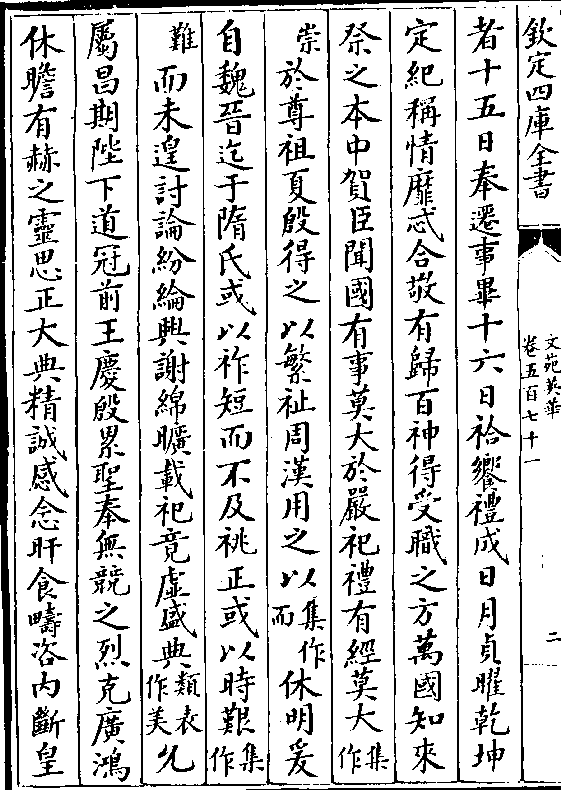 欽定四庫全書
文苑英華
卷五百七十一
二
者十五日奉遷事畢十六日祫饗禮成日月貞曜乾坤
定紀稱情靡忒合敬有歸百神得受職之方萬國知來
祭之本中賀臣聞國有事莫大於嚴祀禮有經莫大集作
崇於尊祖夏殷得之以繁祉周漢用之以集作而休明爰
自魏晉迄于隋氏或以祚短而不及祧正或以時艱集作
難而未遑討論紛綸興謝綿曠載祀竟虛盛典類表作美允
屬昌期陛下道冠前王慶殷累聖奉無競之烈克廣鴻
休瞻有赫之靈思正大典精誠感念旰食疇咨内斷皇